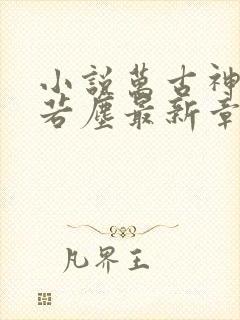 小說萬古神
若塵最新章
凡界王